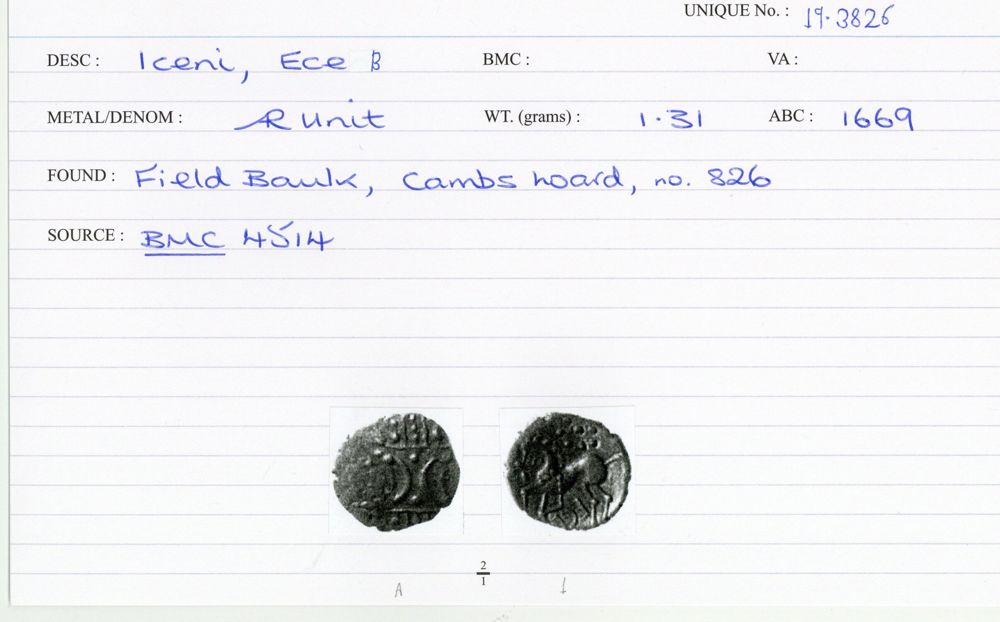 UNIQUE No. : 19.3826
DESC : Iceni, Ece B BMC : VA :
METAL/DENOM : AR Unit WT. (grams) : 1.31 ABC : 1669
FOUND : Field Baulk, Cambs hoard, no. 826
SOURCE : BMC 4514
2
1
A 1